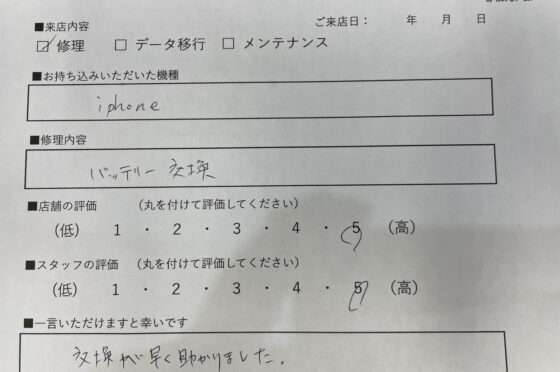 ■来店内容
ご来店日： 年 月 日
☑ 修理 ☐ データ移行 ☐ メンテナンス
■お持ち込みいただいた機種
iphone
■修理内容
バッテリー交換
■店舗の評価 （丸を付けて評価してください）
（低） 1 ・ 2 ・ 3 ・ 4 ・ 5 （高）
■スタッフの評価 （丸を付けて評価してください）
（低） 1 ・ 2 ・ 3 ・ 4 ・ 5 （高）
■一言いただけますと幸いです
交換が早く助かりました。